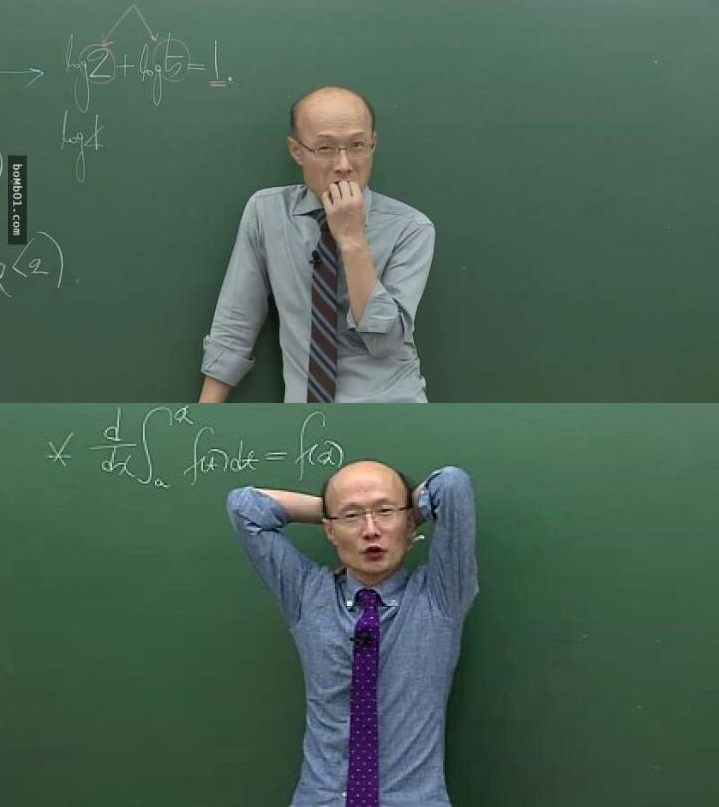 log2 + log5 = 1.
log4
boMb01.com
* d/dx ∫ₐˣ f(t)dt = f(x)